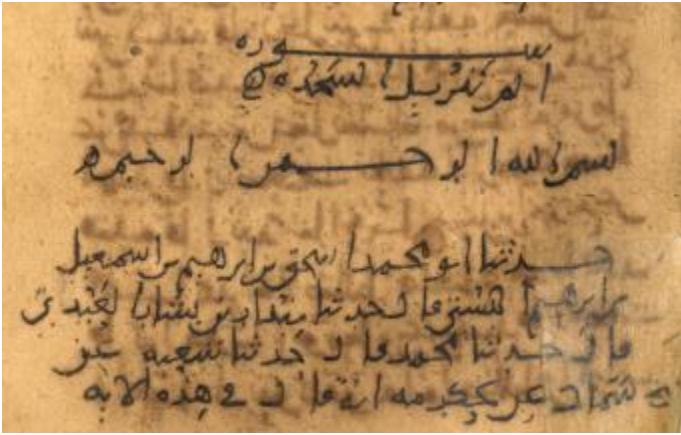 سورة
الم تنزيل السجدة
بسم الله الرحمن الرحيم
حدثنا ابو محمد اسحق بن ابرهيم بن اسمعيل
بن ابرهيم قال حدثنا بندار بن بشار العبدي
قال حدثنا محمد قال حدثنا شعبة عن
سماك عن عكرمه انه قال في هذه الايه